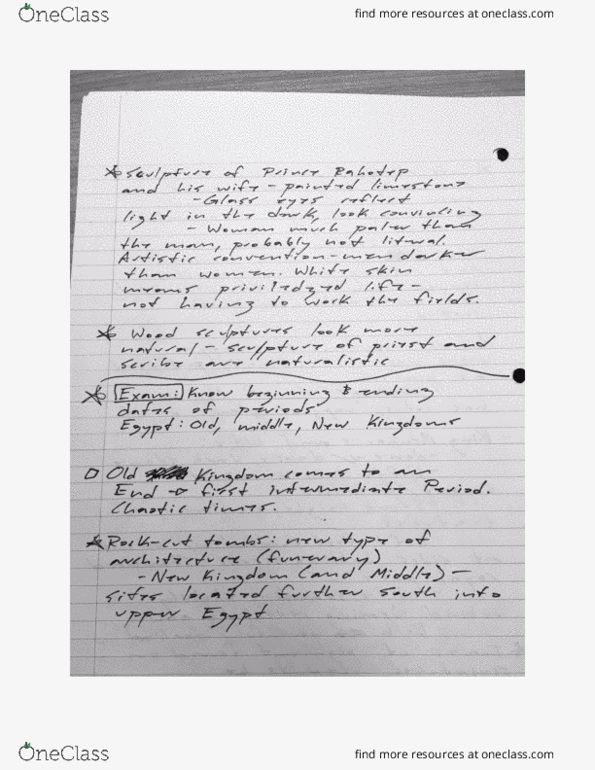 OneClass
find more resources at oneclass.com
* Sculpture of Prince Rahotep
and his wife - painted limestone
- Glass eyes reflect
light in the dark, look convincing
- Woman much paler than
the man, probably not literal.
Artistic convention - men darker
than women. White skin
means priviledged life -
not having to work the fields.
* Wood sculptures look more
natural - sculpture of priest and
scribe are naturalistic
* Exam: Know beginning & ending
dates of periods
Egypt: Old, middle, New Kingdoms
□ Old Kingdom comes to an
End → first intermediate Period.
Chaotic times.
* Rock-cut tombs: new type of
architecture (funerary)
- New Kingdom (and Middle) -
sites located further south into
upper Egypt
OneClass
find more resources at oneclass.com